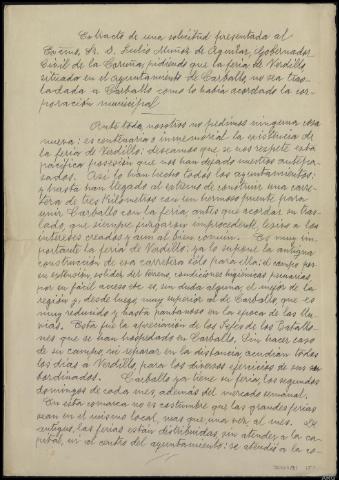 Extracto de una solicitud presentada al
Excmo. Sr. D. Julio Muñoz de Aguilar, Gobernador
Civil de la Coruña, pidiendo que la feria de Verdillo
situado en el ayuntamiento de Carballo, no sea tras-
ladada a Carballo como lo había acordado la cor-
poración municipal
Ante todo nosotros no pedimos ninguna cosa
nueva: es centenaria e inmemorial la existencia de
la feria de Verdillo: deseamos que se nos respete esta
pacífica posesión que nos han dejado nuestros antepa-
sados. Así lo han hecho todos los ayuntamientos;
y hasta han llegado al extremo de construir una carre-
tera de tres kilometros con un hermoso puente para
unir Carballo con la feria, antes que acordar su tras-
lado, que siempre juzgaron improcedente, lesivo a los
intereses creados y aun al bien comun. Es muy im-
portante la feria de Verdillo: ya lo supone la antigua
construcción de esa carretera sólo para ella: el campo por
su extensión, solidez del terreno, condiciones higienicas primarias
por su fácil acceso etc es, sin duda alguna, el mejor de la
región y, desde luego, muy superior al de Carballo, que es
muy reducido y hasta pantanoso en la época de las llu-
vias. Esta fué la apreciación de los Jefes de los Batallo-
nes que se han hospedado en Carballo. Sin hacer caso
de su campo ni reparar en la distancia, acudian todos
los días a Verdillo, para los diversos ejercicios de sus su-
bordinados. Carballo ya tiene su feria, los segundos
domingos de cada mes, además del mercado semanal.
En esta comarca no es costumbre que las grandes ferias
sean en el mismo local, mas que una vez al mes. De
antiguo, las ferias están distribuidas, sin atender a la ca-
pital, ni al centro del ayuntamiento: se atendió a la co-